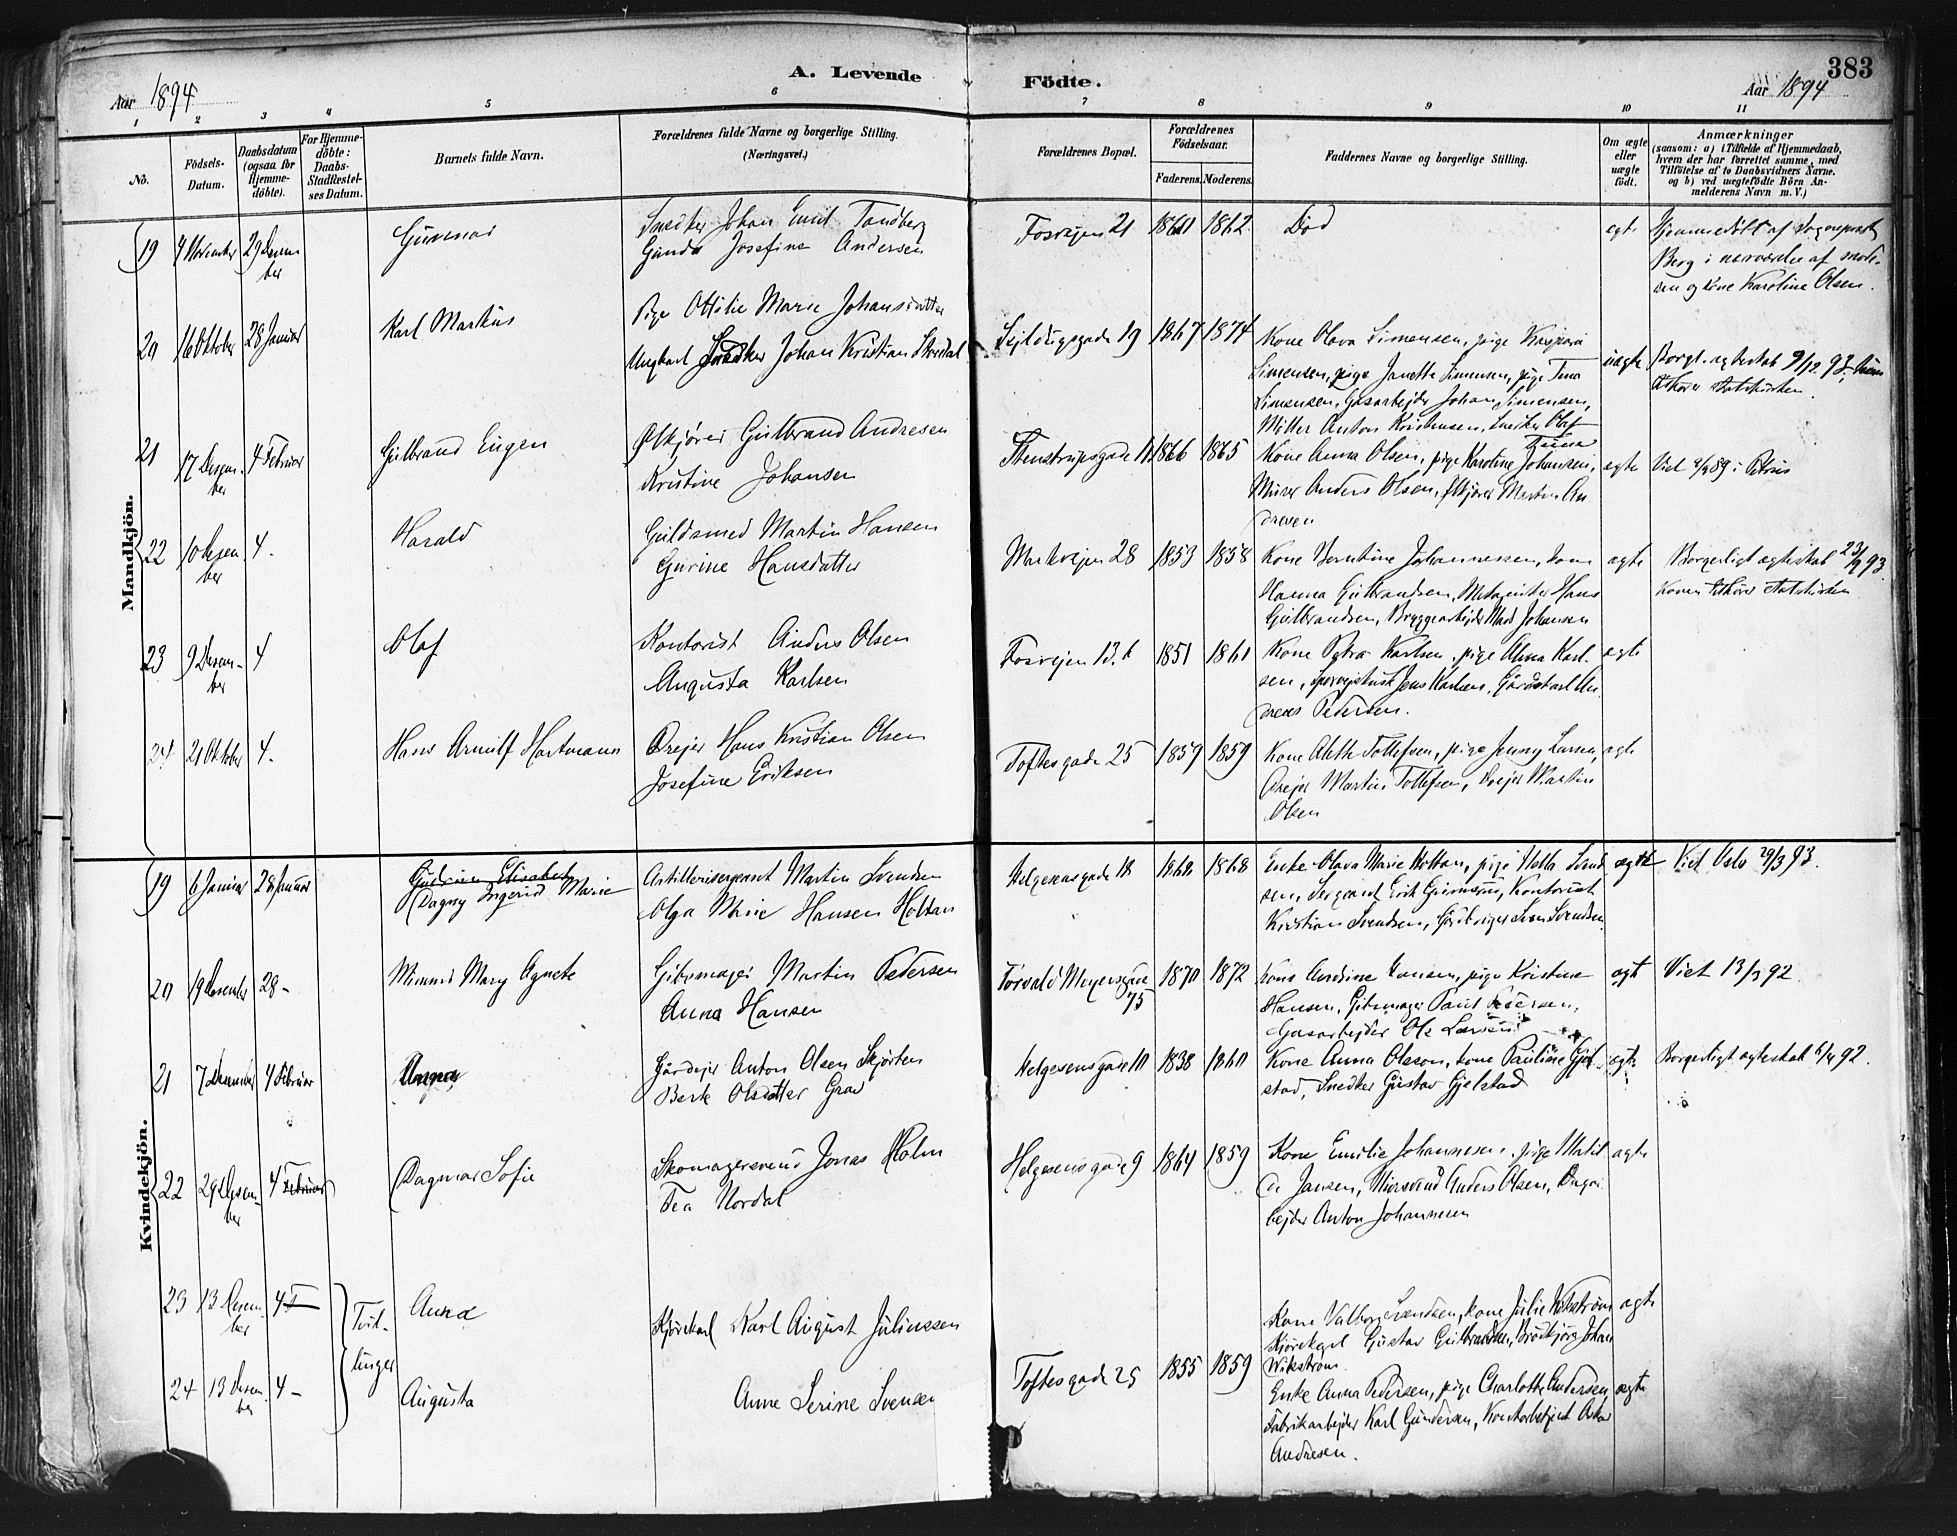 383
A. Levende Födte.
Aar 1894
Aar 1894
1 2 3 4 5 6 7 8 9 10 11
No.
Födsels-Datum.
Daabsdatum (ogsaa for Hjemme-döbte).
For Hjemme-döbte: Daabs-Stadfæstel-ses Datum.
Barnets fulde Navn.
Forældrenes fulde Navne og borgerlige Stilling. (Næringsvei.)
Forældrenes Bopæl.
Forældrenes Födselsaar.
Faderens. Moderens.
Faddernes Navne og borgerlige Stilling.
Om ægte eller uægte födt.
Anmærkninger
(saasom: a) i Tilfælde af Hjemmedaab,
hvem der har forrettet samme, med
Tilföielse af to Daabsvidners Navne.
og b) ved uægtefödte Börn An-
melderens Navn m. V.)
Mandkjön.
19 4 November 29 Desember Gunnar
Snedker Johan Emil Tandberg
Gunda Josefine Andersen
Fosvejen 21 1860 1862 Död ægte
Hjemmedöbt af Sogneprest
Berg i nærværelse af
og kone Karoline Olsen.
20 16 Oktober 28 Januar Karl Markus
Pige Ottilie Marie Johansdatter
Ungkarl Snedker Johan Kristian
19 1867 1874
Kone Olava Simensen, pige Kaspara
Simensen, pige Janette Simensen, pige Tina
Simensen, Gasarbejder Johan Simensen,
Möller Anton Kristensen, Snedker Olaf
uægte
Borgl. ægteskab 9/12 93,
tilhörer statskirken.
21 17 Desember 4 Februar Gulbrand Eugen
Ölkjörer Gulbrand Andresen
Kristine Johansen
Stenstrupsgade 11 1866 1865
Kone Anna Olsen, pige Karoline Johansen,
Murer Anders Olsen, Ölkjörer Martin An
dresen
ægte
Viet 89 i Petrus
22 10 Desember 4. Harald
Guldsmed Martin Hansen
Gurine Hansdatter
Markvejen 28 1853 1858
Kone Johannessen, kone
Hanna Gulbrandsen, Hans
Gulbrandsen, Bryggearbejder Johansen
ægte
Borgerligt ægteskab 23/9 93.
Konen tilhörer statskirken
23 9 Desember 4 Olaf
Kontorist Anders Olsen
Augusta Karlsen
Fosvejen 13.b 1851 1861
Kone Petra Karlsen, pige Anna Karl
sen, Jens Karlsen, Gårdskarl An
dreas Pedersen.
ægte
24 21 Oktober 4. Hans Arnulf Hartmann
Drejer Hans Kristian Olsen
Josefine Eriksen
Toftesgade 25 1859 1859
Kone Aleth Tollefsen, pige Jenny Larsen,
Drejer Martin Tollefsen, Drejer Martin
Olsen
ægte
Kvindekjön.
19 6 Januar 28 Januar
Gudrun Elisabet
Dagny Ingerid Marie
Artillerisergeant Martin Svendsen
Olga Marie Hansen Holtan
Helgesensgade 18 1862 1868
Enke Olava Marie Holtan, pige Svend
sen, Sergeant Erik, Kontorist
Kristian Svendsen, Gårdbruger Sven Svendsen
ægte
Viet Oslo 29/3 93.
20 19 Desember 28 - Mary Agnete
Gibsmager Martin Pedersen
Anna Hansen
Torvald Meyersgade 75 1870 1872
Kone Andrine Hansen, pige Kristine
Hansen, Gibsmager Paul Pedersen,
Gasarbejder Ole Larsen
ægt
Viet 13/3 92.
21 7 Desember 4 Februar Anna
Gårdejer Anton Olsen Skjörten
Berte Olsdatter Grav
Helgesensgade 10 1838 1860
Kone Anna Olsson, kone Pauline Gjel
stad, Snedker Gustav Gjelstad
ægte
Borgerligt ægteskab 6/4 92.
22 29 Desember 4 Februar Dagmar Sofie
Skomagersvend Jonas Holm
Tea Nordal
Helgesensgade 9 1864 1859
Kone Emilie Johannesen, pige Matil
de Jansen, Mursvend Anders Olsen, Dagar
bejder Anton Johannesen
ægte
23 13 Desember 4 F Tvil- Anna
Kjörekarl Karl August Juliussen
Kone Valborg Svendsen, kone Julie Wikström
Kjörekarl Gustav Gulbrandsen, Brödkjörer Johan
Wikström.
ægte
24 13 Desember 4 - linger Augusta
Anne Serine Svensen
Toftesgade 25 1855 1859
Enke Anna Pedersen, pige Charlotte Andersen
Fabrikarbejder Karl Gundersen, Kontorbetjent Oskar
Andresen.
ægte